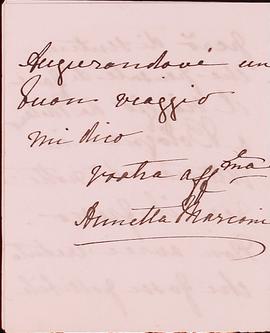 Augurandovi un
buon viaggio
mi dico
vostra aff.ma
Annetta Marconi